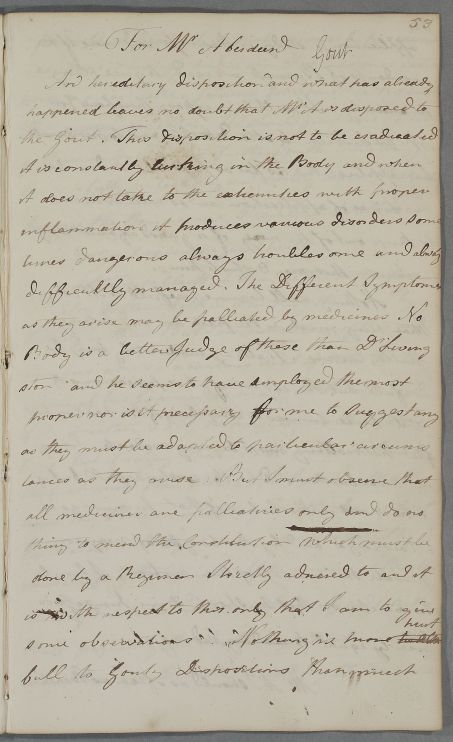 53
For Mr Aberdeen Gout
An hereditary disposition and what has already
happened leaves no doubt that Mr A is disposed to
the Gout. This disposition is not to be eradicated
it is constantly lurking in the Body and when
it does not take to the extremities with proper
inflammation it produces various disorders some
times dangerous always troublesome and always
difficultly managed. The Different Symptoms
as they arise may be palliated by medicines No
Body is a better Judge of these than Dr Living
ston and he seems to have employed the most
proper nor is it necessary for me to suggest any
as they must be adapted to particular circums
tances as they arise. But I must observe that
all medicines are palliatives only and do no
thing to mend the Constitution which must be
done by a Regimen strictly adhered to and it
is with respect to this only that I am to give
some observations. Nothing is more hurt
full to Gouty Dispositions than much